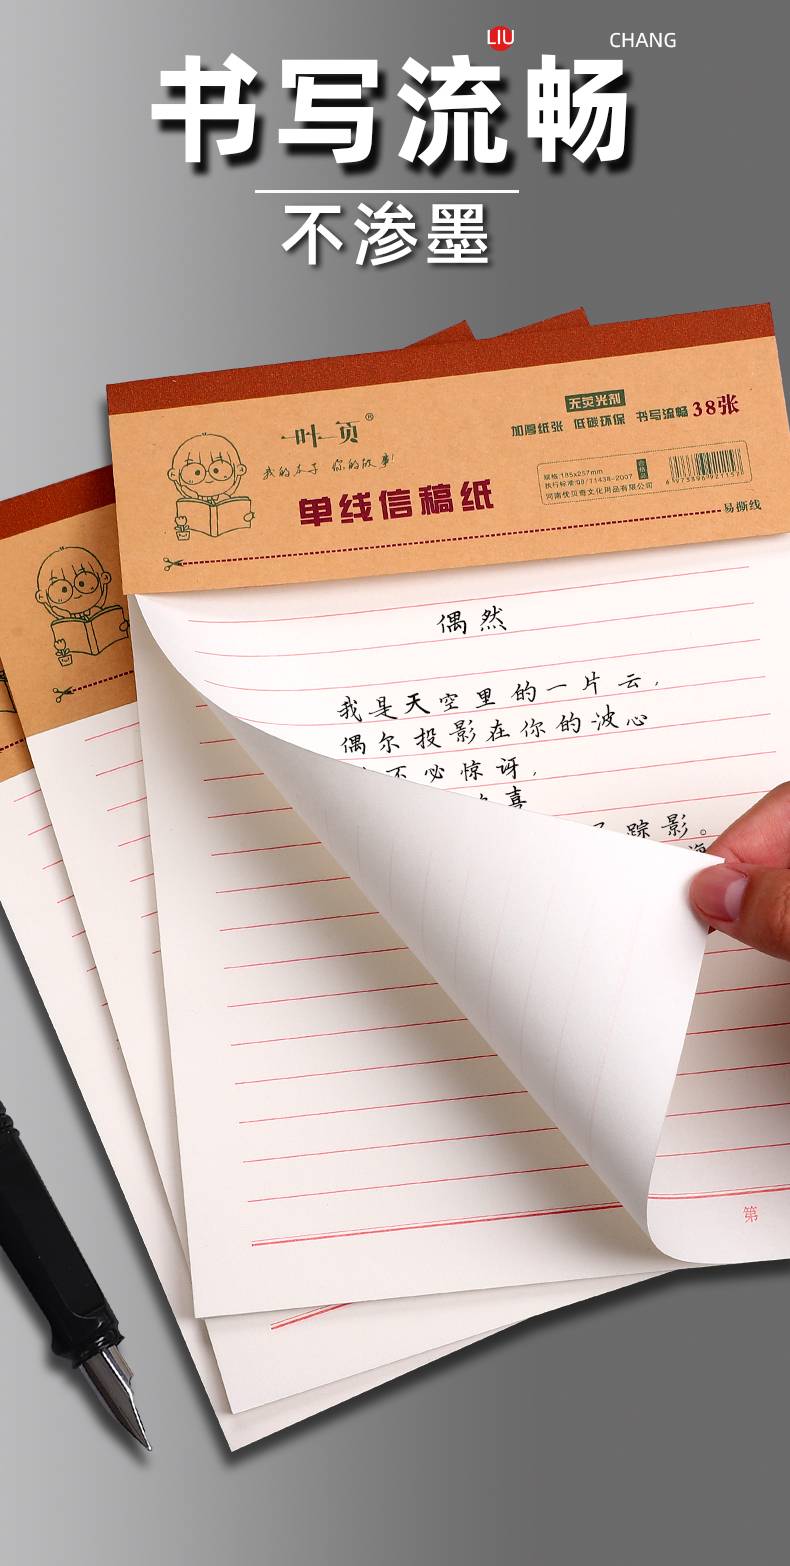 LIU CHANG
书写流畅
不渗墨
一叶页®
我的本子 你的故事!
单线信稿纸
无荧光剂
加厚纸张 低碳环保 书写流畅 38张
规格:185x257mm
执行标准:QB/T1438-2007
河南优贝奇文化用品有限公司
易撕线
偶然
我是天空里的一片云,
偶尔投影在你的波心
不必惊讶,
喜
踪影。
第